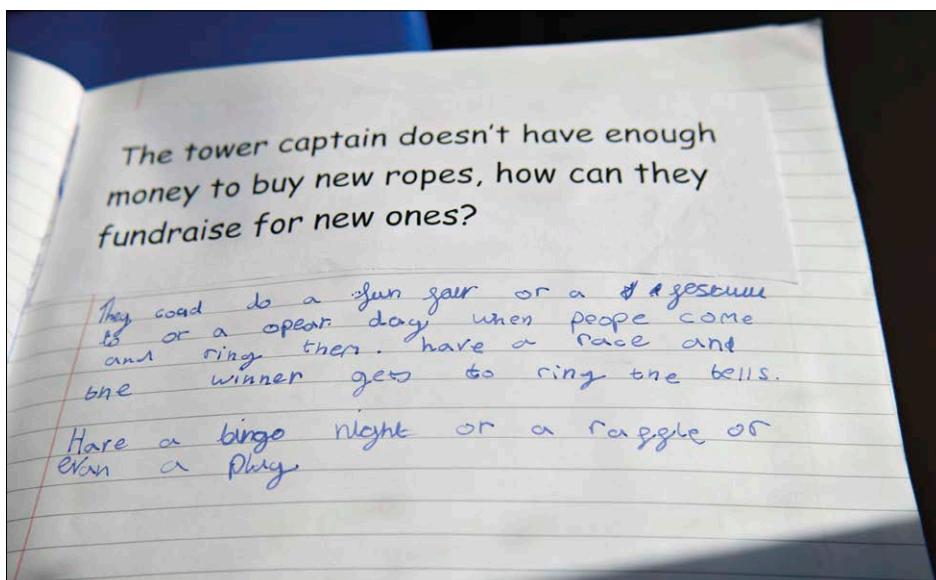 The tower captain doesn't have enough
money to buy new ropes, how can they
fundraise for new ones?
They coad do a fun fair or a
to or a opear day when peope come
and ring them. have a race and
the winner gets to ring the bells.
Have a bingo night or a raffle or
evan a play